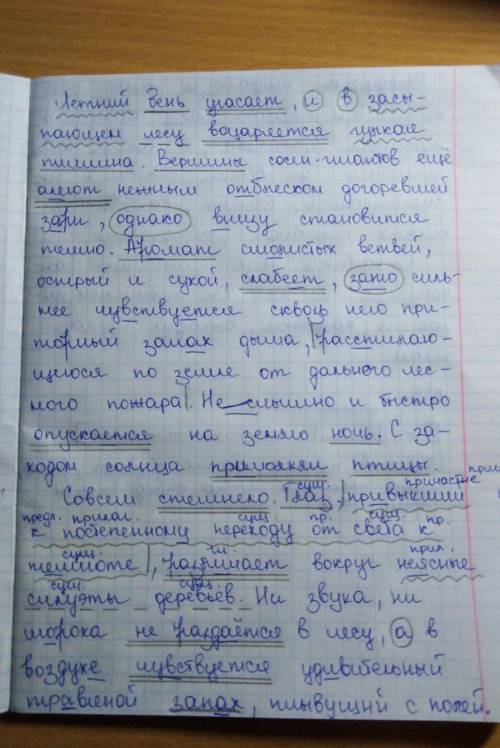 Летний день угасает, и в засы-
пающем лесу воцаряется гулкая
тишина. Вершины сосен-гигантов ещё
алеют нежным отблеском догоревшей
зари, однако внизу становится
темно. Аромат смолистых ветвей,
острый и сухой, слабеет, зато силь-
нее чувствуется сквозь него при-
торный запах дыма, расстилаю-
щегося по земле от дальнего лес-
ного пожара. Неслышно и быстро
опускается на землю ночь. С за-
ходом солнца примолкли птицы.
сущ. причастие
Совсем стемнело. Глаз, привыкший
предл. прилаг. сущ. пр. сущ. пр.
к постепенному переходу от света к
сущ. гл. прил.
темноте, различает вокруг неясные
сущ. сущ.
силуэты деревьев. Ни звука, ни
шороха не раздаётся в лесу, а в
воздухе чувствуется удивительный
травяной запах, плывущий с полей.